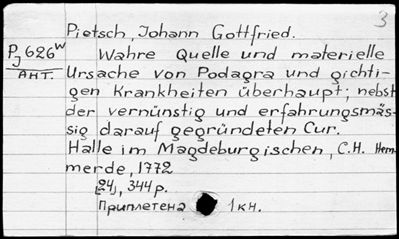 3
Pietsch, Johann Gottfried.
Pj 626 w
Ант.
Wahre Quelle und materielle
Ursache von Podagra und gichti-
gen Krankheiten überhaupt; nebst
der vernünstig und erfahrungsmäs-
sig darauf gegründeten Cur.
Halle im Magdeburgischen, C.H. Hem-
merde, 1772
[24], 344 p.
Приплетена 1 кн.